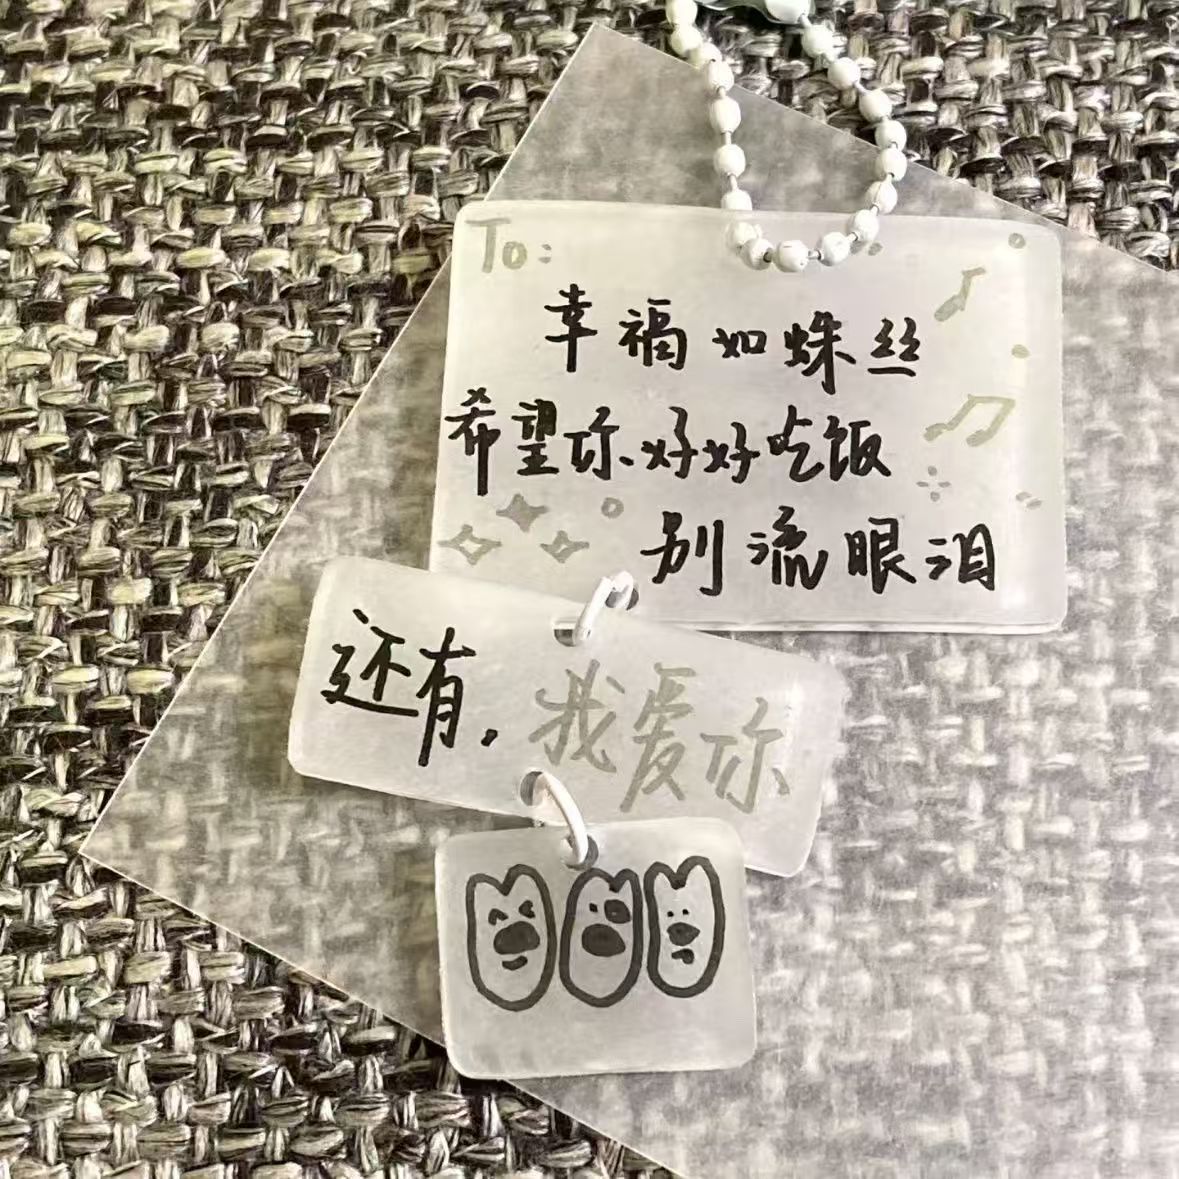 To:
幸福如蛛丝
希望你好好吃饭
别流眼泪
还有，我爱你